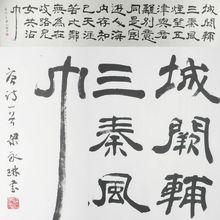 城闕輔
三秦風
煙望五
津與君
離別意
同是宦
遊人海
內存知
己天涯
若比鄰
無為在
歧路兒
女共沾
巾
城闕輔
三秦風
巾
唐诗